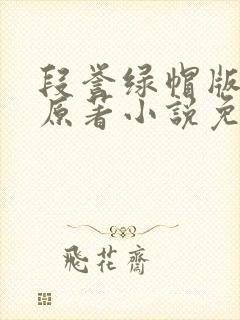 段誉绿帽版
原著小說免
飛花齋